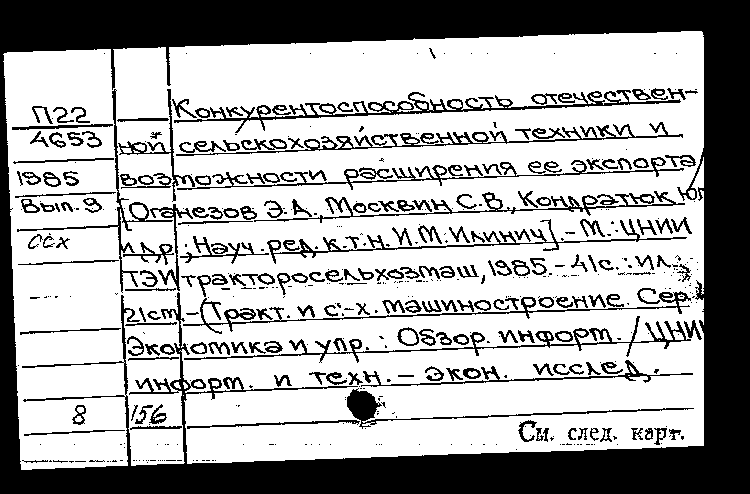 П22 Конкурентоспособность отечествен-
4653 ной сельскохозяйственной техники и
1985 возможности расширения ее экспорта/
Вып.9 [Оганезов Э.А., Москвин С.В., Кондратюк Ю.
ссх и др.; Науч. ред. к.т.н. И.М. Илинич]. – М.: ЦНИИ
ТЭИтракторосельхозмаш, 1985. – 41с. : ил.;
21см. – (Тракт. и с.-х. машиностроение. Сер.
Экономика и упр. : Обзор. информ. / ЦНИИ
информ. и техн. – экон. исслед.
8 156
См. след. карт.